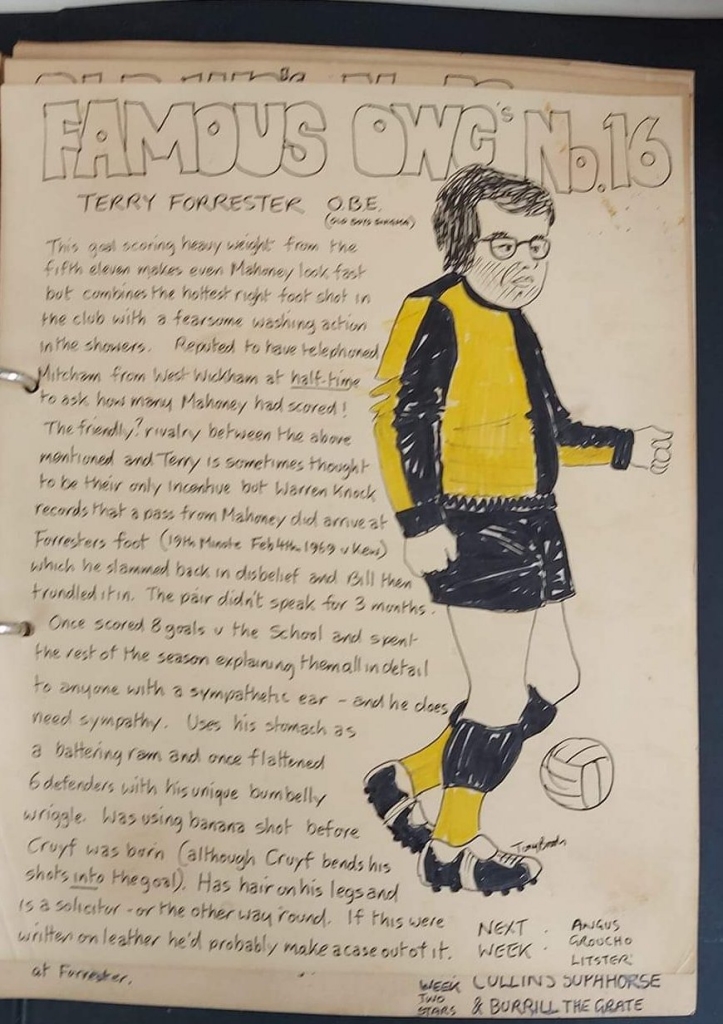 FAMOUS OWC's No.16
TERRY FORRESTER O.B.E.
(OLD BOYS ENIGMA)
This goal scoring heavy weight from the
fifth eleven makes even Mahoney look fast
but combines the hottest right foot shot in
the club with a fearsome washing action
in the showers. Reputed to have telephoned
Mitcham from West Wickham at half-time
to ask how many Mahoney had scored!
The friendly? rivalry between the above
mentioned and Terry is sometimes thought
to be their only incentive but Warren Knock
records that a pass from Mahoney did arrive at
Forresters foot (19th Minute Feb 4th 1969 v Kew)
which he slammed back in disbelief and Bill then
trundled it in. The pair didn't speak for 3 months.
Once scored 8 goals v the School and spent
the rest of the season explaining them all in detail
to anyone with a sympathetic ear - and he does
need sympathy. Uses his stomach as
a battering ram and once flattened
6 defenders with his unique bumbelly
wriggle. Was using banana shot before
Cruyf was born (although Cruyf bends his
shots into the goal). Has hair on his legs and
is a solicitor - or the other way round. If this were
written on leather he'd probably make a case out of it.
NEXT WEEK. ANGUS
GROUCHO
LITSTER
at Forrester.
WEEK TWO STARS
CULLINS SUPAHORSE
& BURRILL THE GRATE